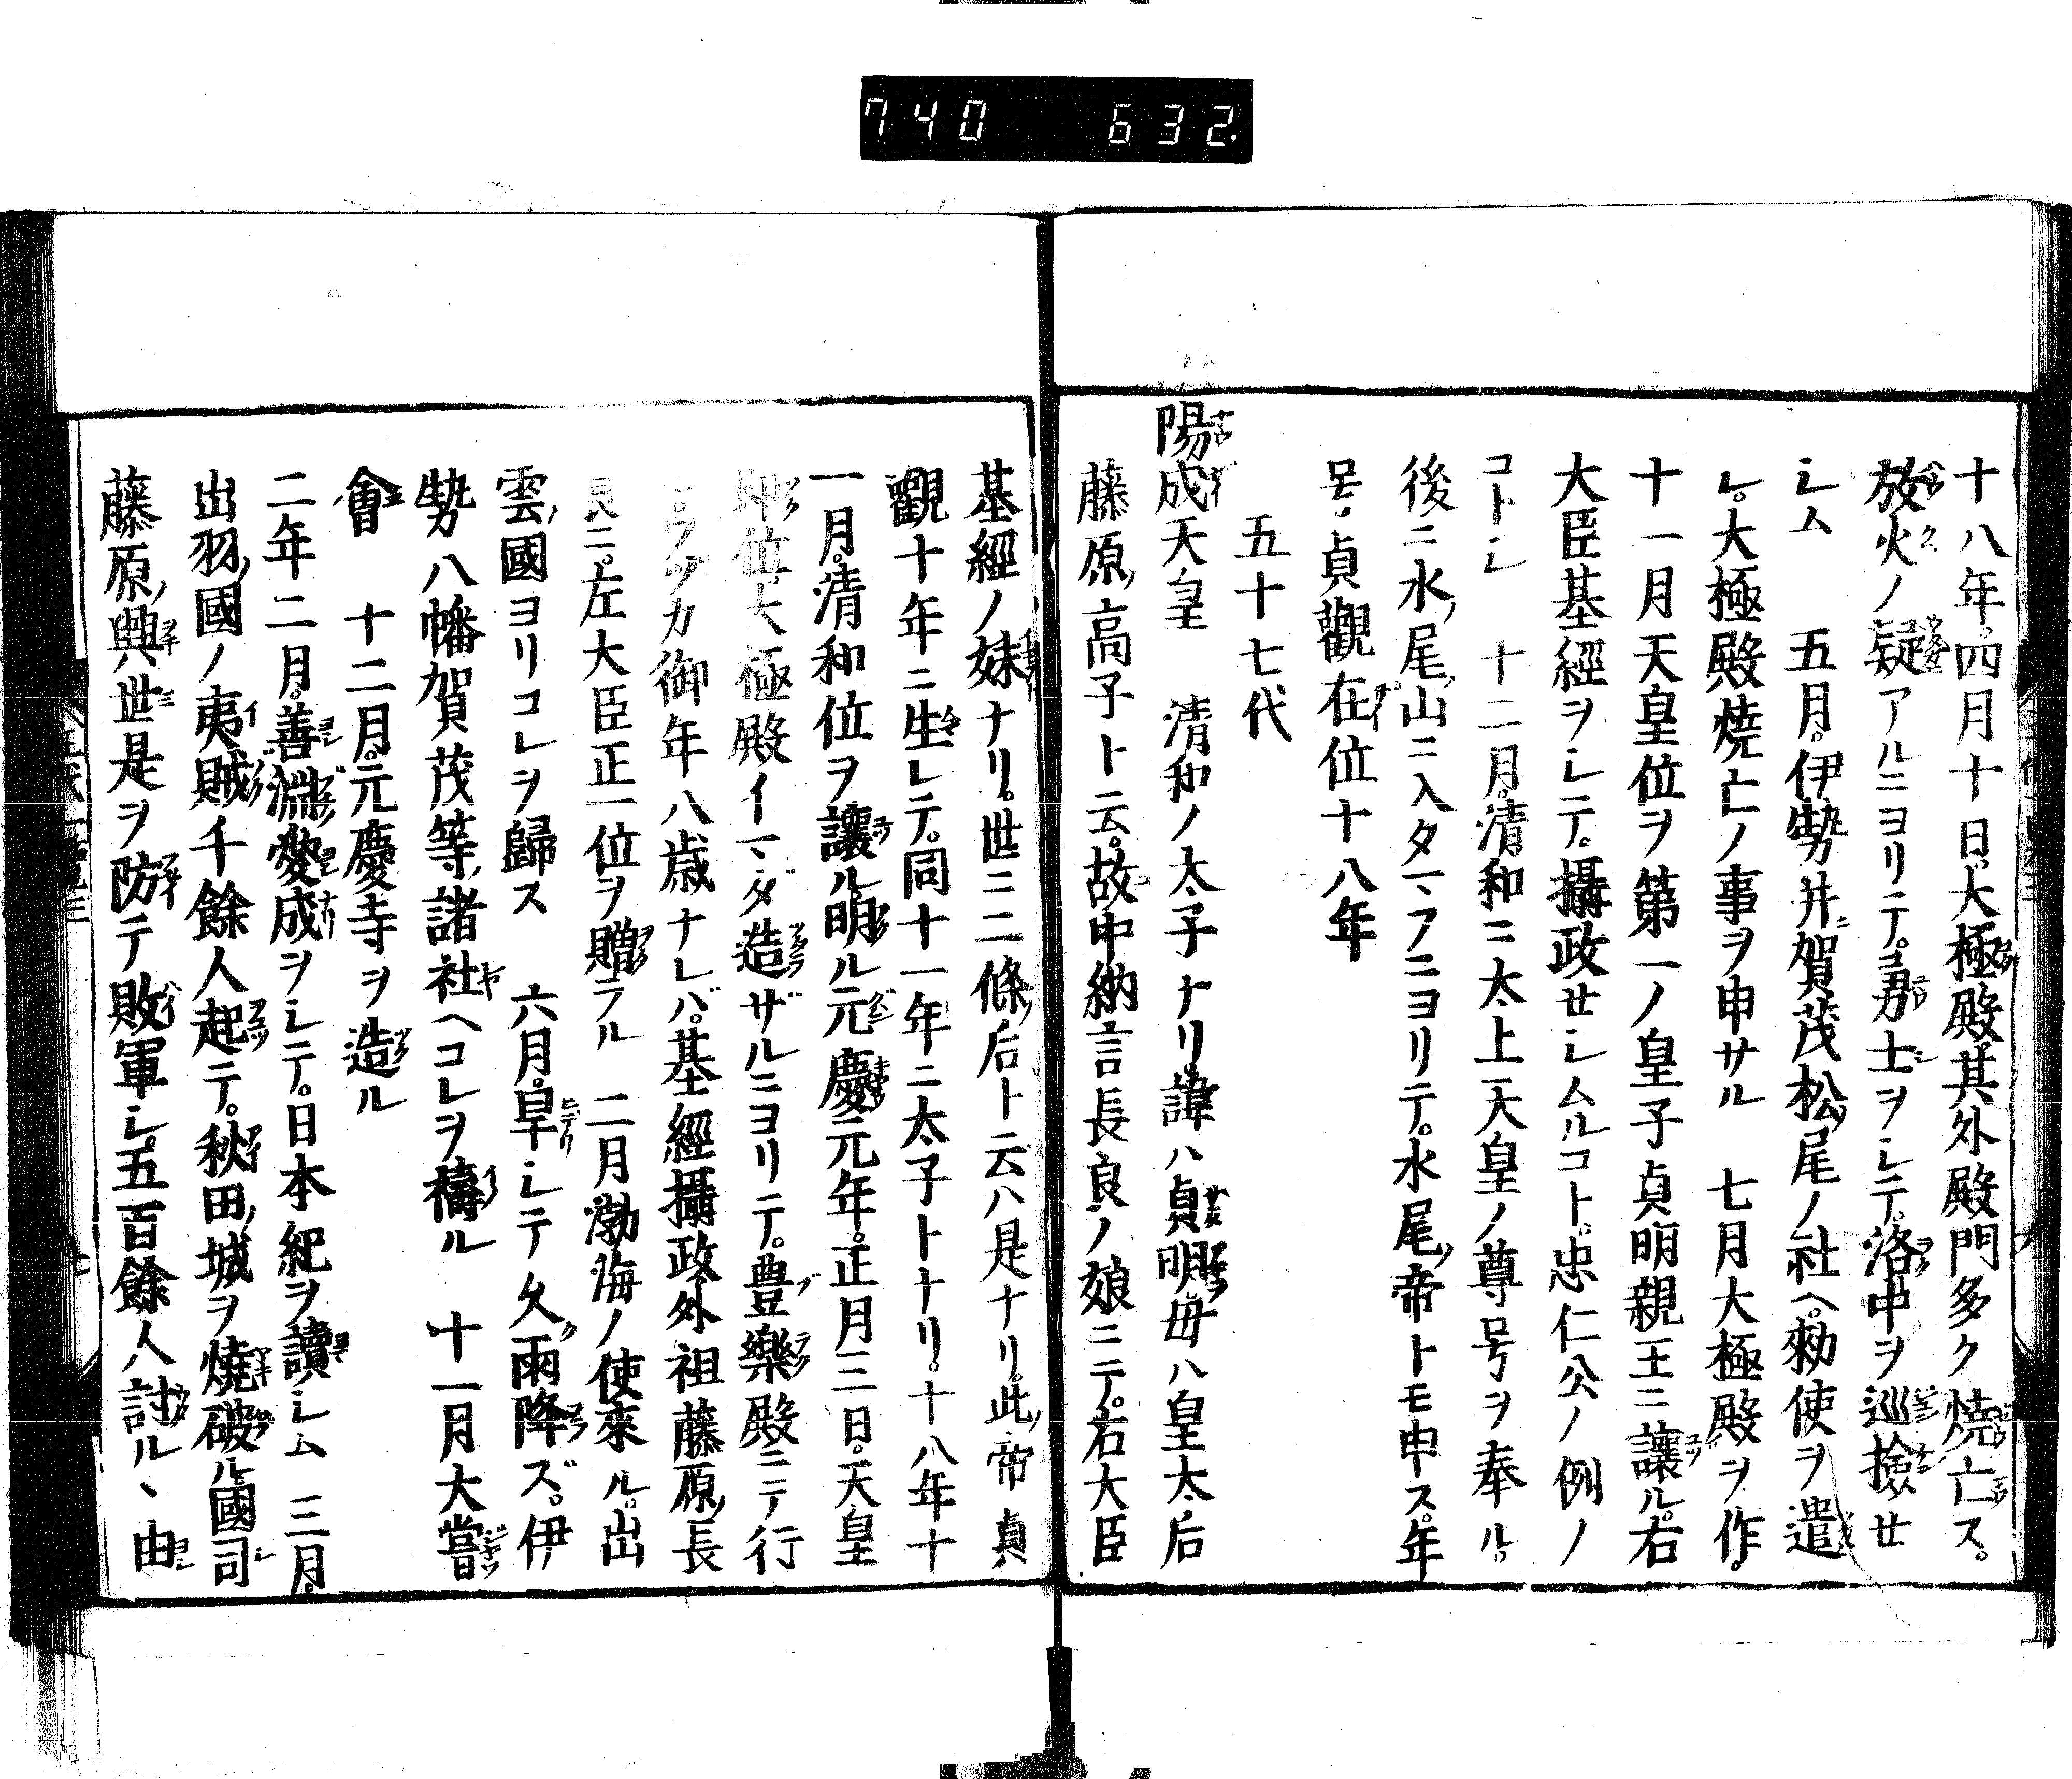 740 632.
十八年四月十日。大極殿其外殿門多ク燒亡ス。
放火ノ疑アルニヨリテ。勇士ヲシテ。洛中ヲ巡撿セ
シム 五月。伊勢并賀茂松尾ノ社ヘ。勅使ヲ遣
シ。大極殿燒亡ノ事ヲ申サル 七月大極殿ヲ作。
十一月天皇位ヲ第一ノ皇子貞明親王ニ讓ル。右
大臣基經ヲシテ。攝政セシムルコト。忠仁公ノ例ノ
コトシ 十二月。清和ニ太上天皇ノ尊号ヲ奉ル。
後ニ水ノ尾山ニ入タマフニヨリテ。水尾ノ帝トモ申ス。年
号ハ貞觀在位十八年
五十七代
陽成天皇 清和ノ太子ナリ。諱ハ貞明。母ハ皇太后
藤原ノ高子ト云。故中納言長良ノ娘ニテ。右大臣
基經ノ妹ナリ。世ニ二條ノ后ト云ハ是ナリ。此ノ帝貞
觀十年ニ生レテ。同十一年ニ太子トナリ。十八年十
一月。清和位ヲ讓ル。明ル元慶元年。正月三日。天皇
即位。大極殿イマダ造ザルニヨリテ。豊樂殿ニテ行
ヲヅカ御年八歳ナレバ。基經攝政。外祖藤原ノ長
良ニ。左大臣正一位ヲ贈ラル 二月渤海ノ使來ル。出
雲ノ國ヨリコレヲ歸ス 六月。旱シテ久ク雨降ズ。伊
勢八幡賀茂等ノ諸社ヘコレヲ禱ル 十一月大嘗
會 十二月。元慶寺ヲ造ル
二年二月。善淵愛成ヲシテ。日本紀ヲ讀シム 三月。
出羽ノ國ノ夷賊千餘人起テ。秋田ノ城ヲ燒破ル。國司
藤原ノ興世是ヲ防テ敗軍シ。五百餘人討ルヽ由